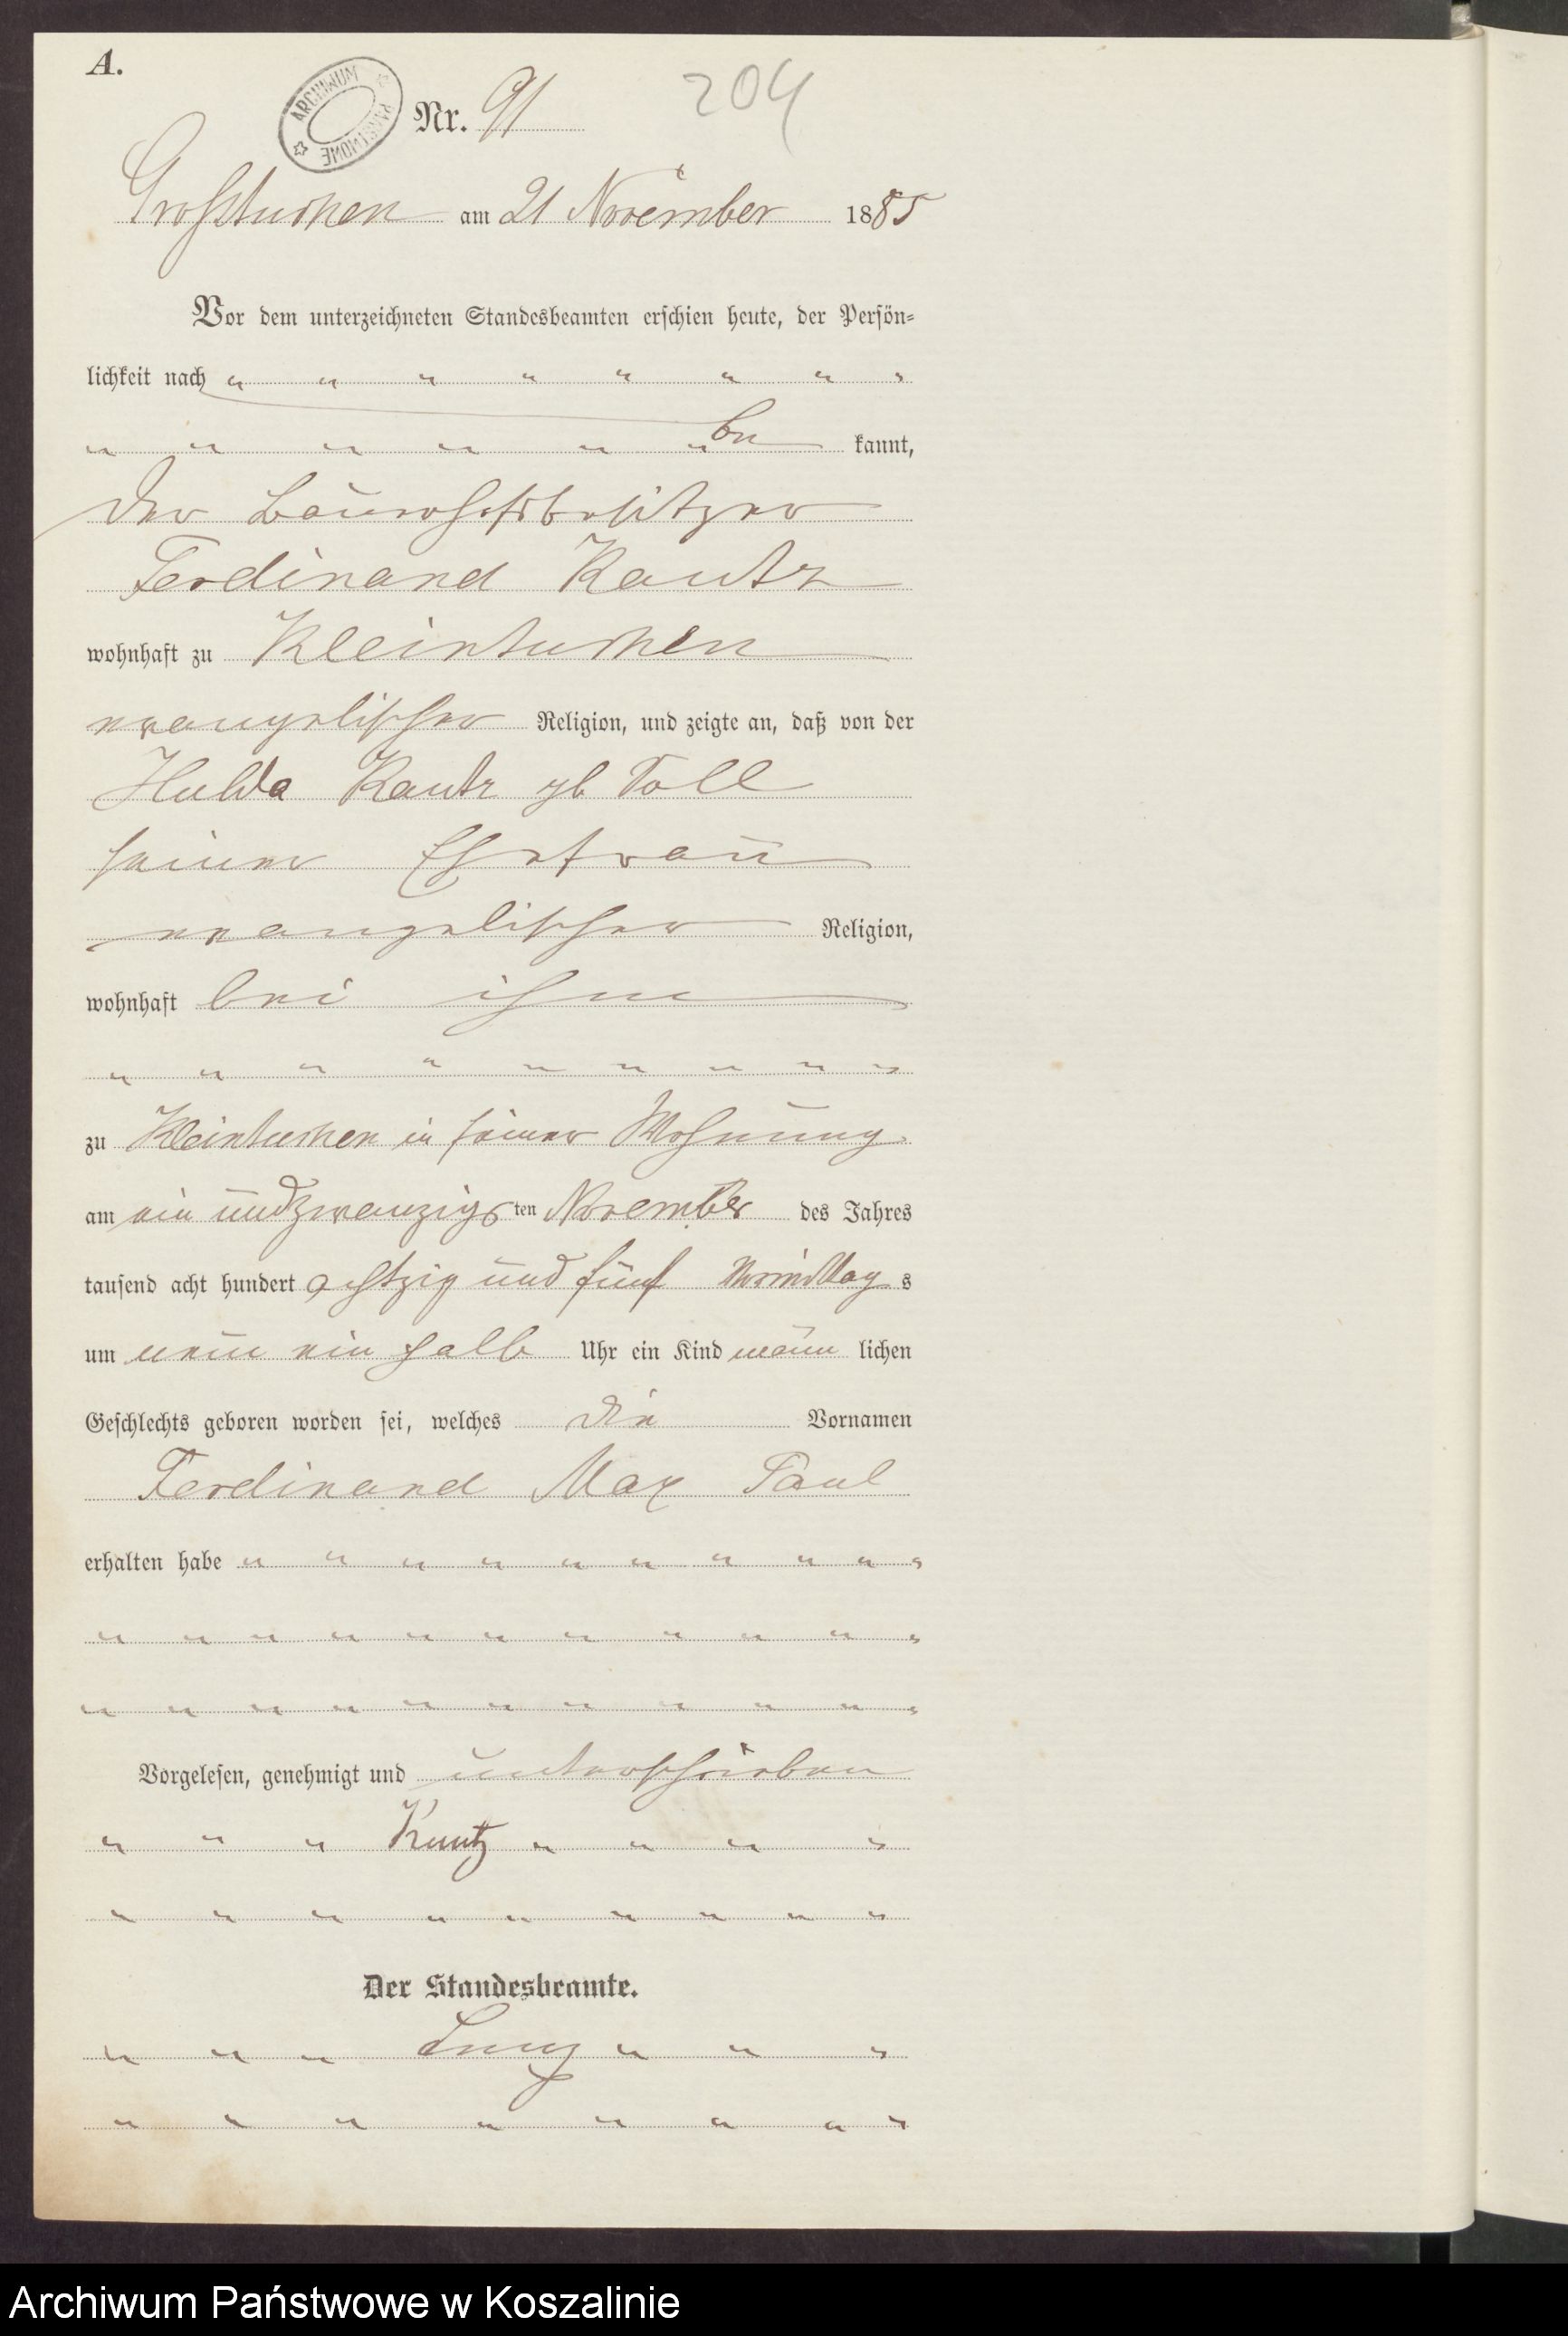 A.
ARCHIWUM PAŃSTWOWE
Nr. 91
204
Großtuchen am 21 November 1885
Vor dem unterzeichneten Standesbeamten erschien heute, der Persön-
lichkeit nach " " " " " " " "
" " " " " " be kannt,
der Bauerhofsbesitzer
Ferdinand Kautz
wohnhaft zu Kleintuchen
evangelischer Religion, und zeigte an, daß von der
Hulda Kautz gb Toll
seiner Ehefrau
evangelischer Religion,
wohnhaft bei ihm
" " " " " " " " "
zu Kleintuchen in seiner Wohnung
am ein und zwanzigsten November des Jahres
tausend acht hundert achtzig und fünf Vormittag s
um neun ein halb Uhr ein Kind männ lichen
Geschlechts geboren worden sei, welches die Vornamen
Ferdinand Max Paul
erhalten habe " " " " " " " " " "
" " " " " " " " " " "
" " " " " " " " " " "
Vorgelesen, genehmigt und unterschrieben
" " " Kautz " " " "
" " " " " " " " "
Der Standesbeamte.
" " " " " "
" " " " " " " "
Archiwum Państwowe w Koszalinie